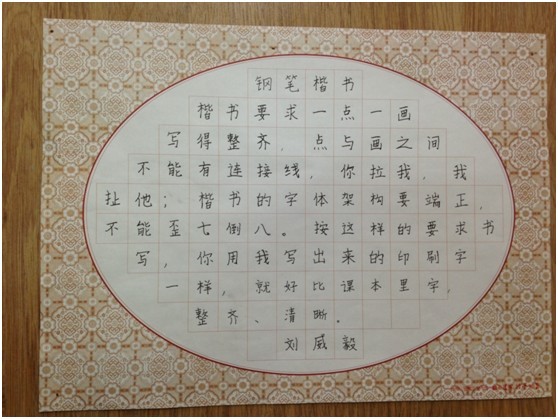 钢笔楷书
楷书要求一点一画
写得整齐,点与画之间
不能有连接线,你拉我,我
扯他;楷书的字体架构要端正,
不能歪七倒八。按这样的要求书
写,你用我写出来的印刷字
一样,就好比课本里字,
整齐、清晰。
刘威毅